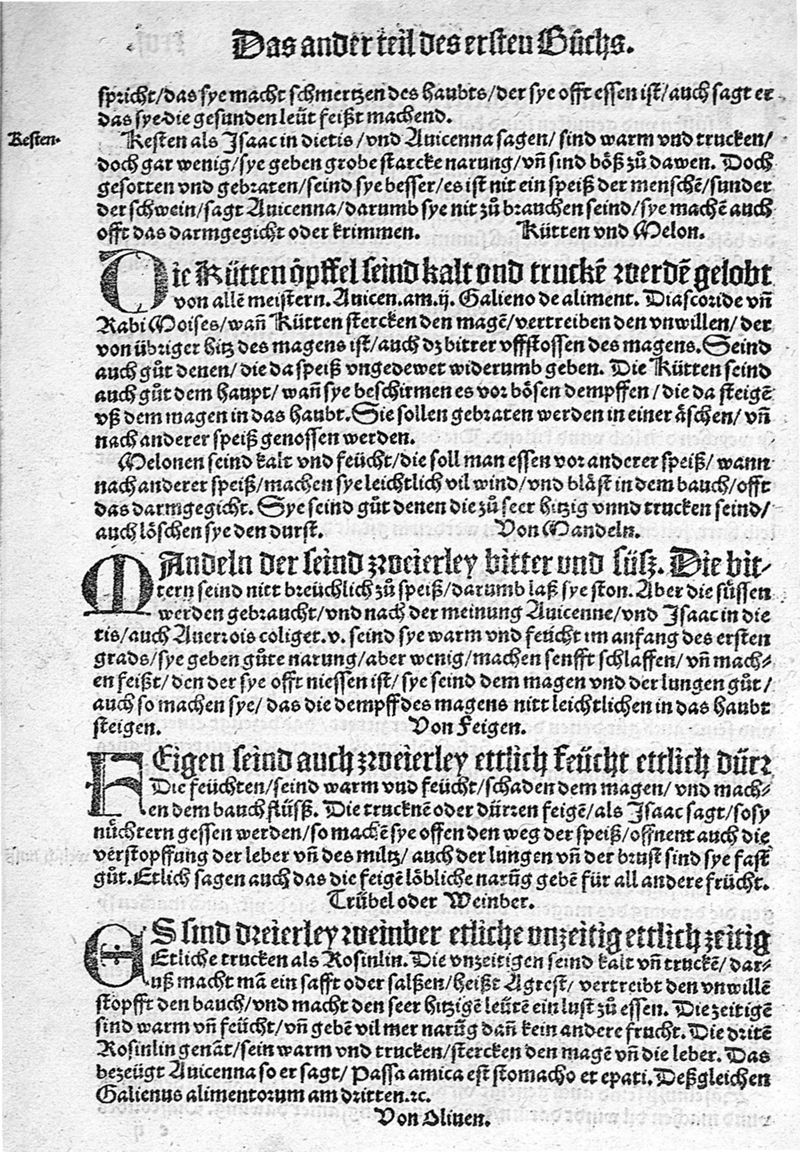 Das ander teil des ersten Bůchs.
spricht/das sye macht schmertzen des haubts/der sye offt essen ist/auch sagt er
das sye die gesunden leüt feißt machend.
Kesten.
Kesten als Isaac in dietis/vnd Auicenna sagen/sind warm vnd trucken/
doch gar wenig/sye geben grobe starcke narung/vñ sind böß zů dawen. Doch
gesotten vnd gebraten/seind sye besser/es ist nit ein speiß der menschẽ/sunder
der schwein/sagt Auicenna/darumb sye nit zů brauchen seind/sye machẽ auch
offt das darmgegicht oder krimmen. Kütten vnd Melon.
Die Kütten öpffel seind kalt vnd truckẽ werdẽ gelobt
von allẽ meistern. Auicen.am.ij. Galieno de aliment. Diascoride vñ
Rabi Moises/wañ Kütten stercken den magẽ/vertreiben den vnwillen/der
von übriger hitz des magens ist/auch dz bitrer vffstossen des magens. Seind
auch gůt denen/die da speiß vngedewet widerumb geben. Die Kütten seind
auch gůt dem haupt/wañ sye beschirmen es vor bösen dempffen/die da steigẽ
vß dem magen in das haubt. Sie sollen gebraten werden in einer äschen/vñ
nach anderer speiß genossen werden.
Melonen seind kalt vnd feücht/die soll man essen vor anderer speiß/wann
nach anderer speiß/machen sye leichtlich vil wind/vnd bläst in dem bauch/offt
das darmgegicht. Sye seind gůt denen die zů seer hitzig vnnd trucken seind/
auch löschen sye den durst. Von Mandeln.
MAndeln der seind zweierley bitter vnd süsz. Die bit-
tern seind nitt breüchlich zů speiß/darumb laß sye ston. Aber die süssen
werden gebraucht/vnd nach der meinung Auicenne/vnd Isaac in die
tis/auch Auerrois coliget.v. seind sye warm vnd feücht im anfang des ersten
grads/sye geben gůte narung/aber wenig/machen senfft schlaffen/vñ mach-
en feißt/den der sye offt niessen ist/sye seind dem magen vnd der lungen gůt/
auch so machen sye/das die dempff des magens nitt leichtlichen in das haubt
steigen. Von Feigen.
FEigen seind auch zweierley ettlich feücht ettlich dürr
Die feüchten/seind warm vnd feücht/schaden dem magen/vnd mach-
en dem bauch flüsß. Die trucknẽ oder dürren feigẽ/als Isaac sagt/so sy
nüchtern gessen werden/so machẽ sye offen den weg der speiß/offnent auch die
verstopffung der leber vñ des miltz/auch der lungen vñ der brust sind sye fast
gůt. Etlich sagen auch das die feigẽ löbliche narũg gebẽ für all andere frücht.
Trübel oder Weinber.
ES sind dreierley weinber etliche vnzeitig ettlich zeitig
Etliche trucken als Rosinlin. Die vnzeitigen seind kalt vñ truckẽ/dar-
uß macht mã ein safft oder salßen/heißt Agrest/vertreibt den vnwillẽ
stopfft den bauch/vnd macht den seer hitzigẽ leütẽ ein lust zů essen. Die zeitigẽ
sind warm vñ feücht/vñ gebẽ vil mer narũg dañ kein andere frucht. Die dritẽ
Rosinlin genãt/sein warm vnd trucken/stercken den magẽ vñ die leber. Das
bezeügt Auicenna so er sagt/Passa amica est stomacho et epati. Deßgleichen
Galienus alimentorum am dritten.ꝛc.
Von Oliuen.